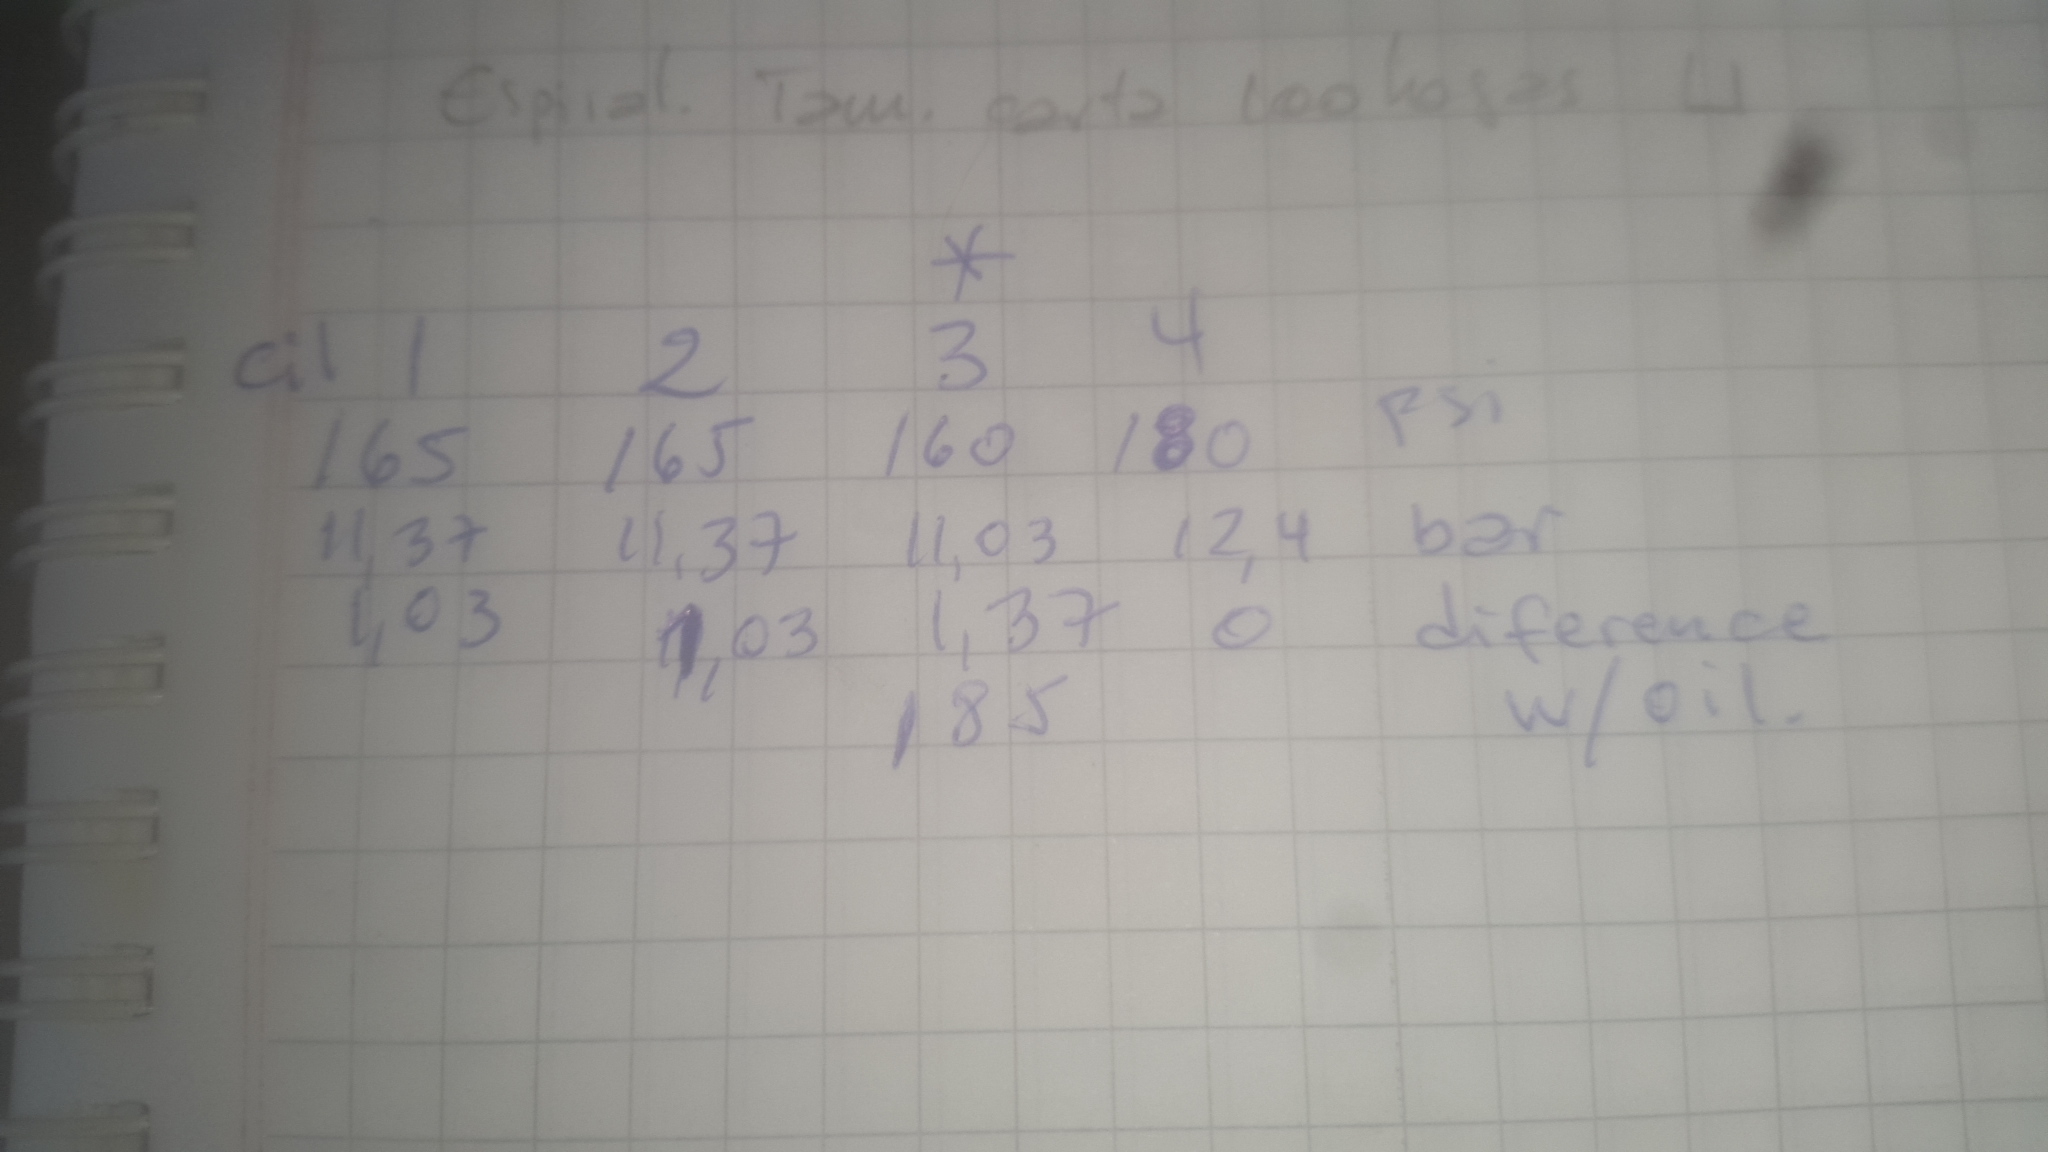 Espiral. Tam. carta 100 hojas
*
cil 1 2 3 4
165 165 160 180 psi
11,37 11,37 11,03 12,4 bar
1,03 1,03 1,37 0 diference
185 w/oil.